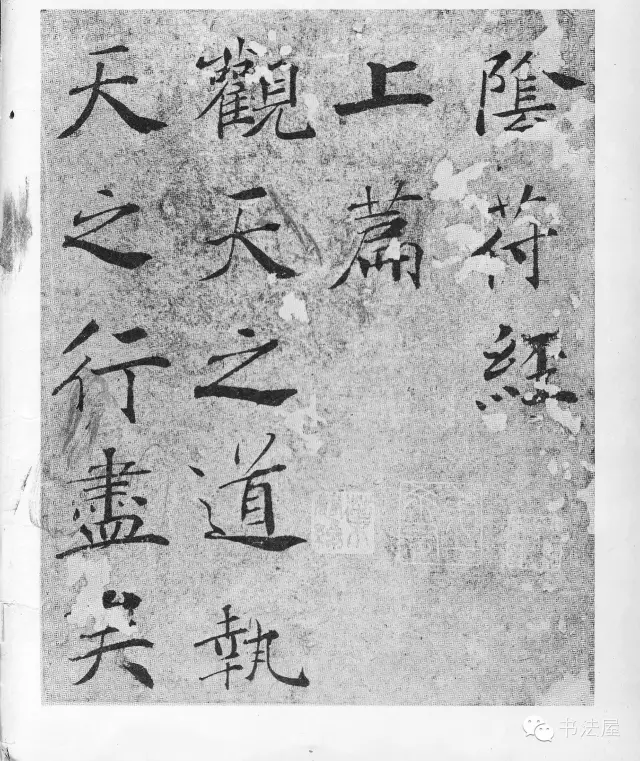 陰符經
上篇
觀天之道執
天之行盡矣
书法屋